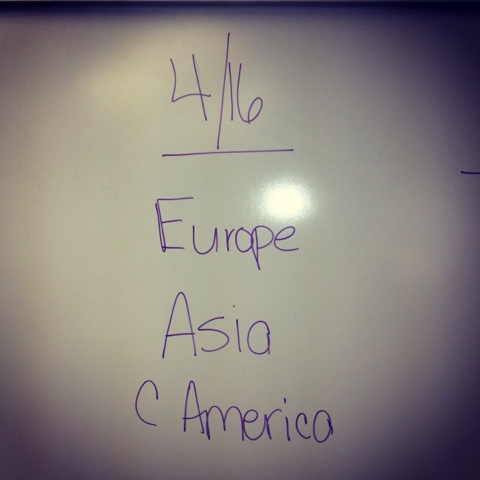 4/16
Europe
Asia
C America